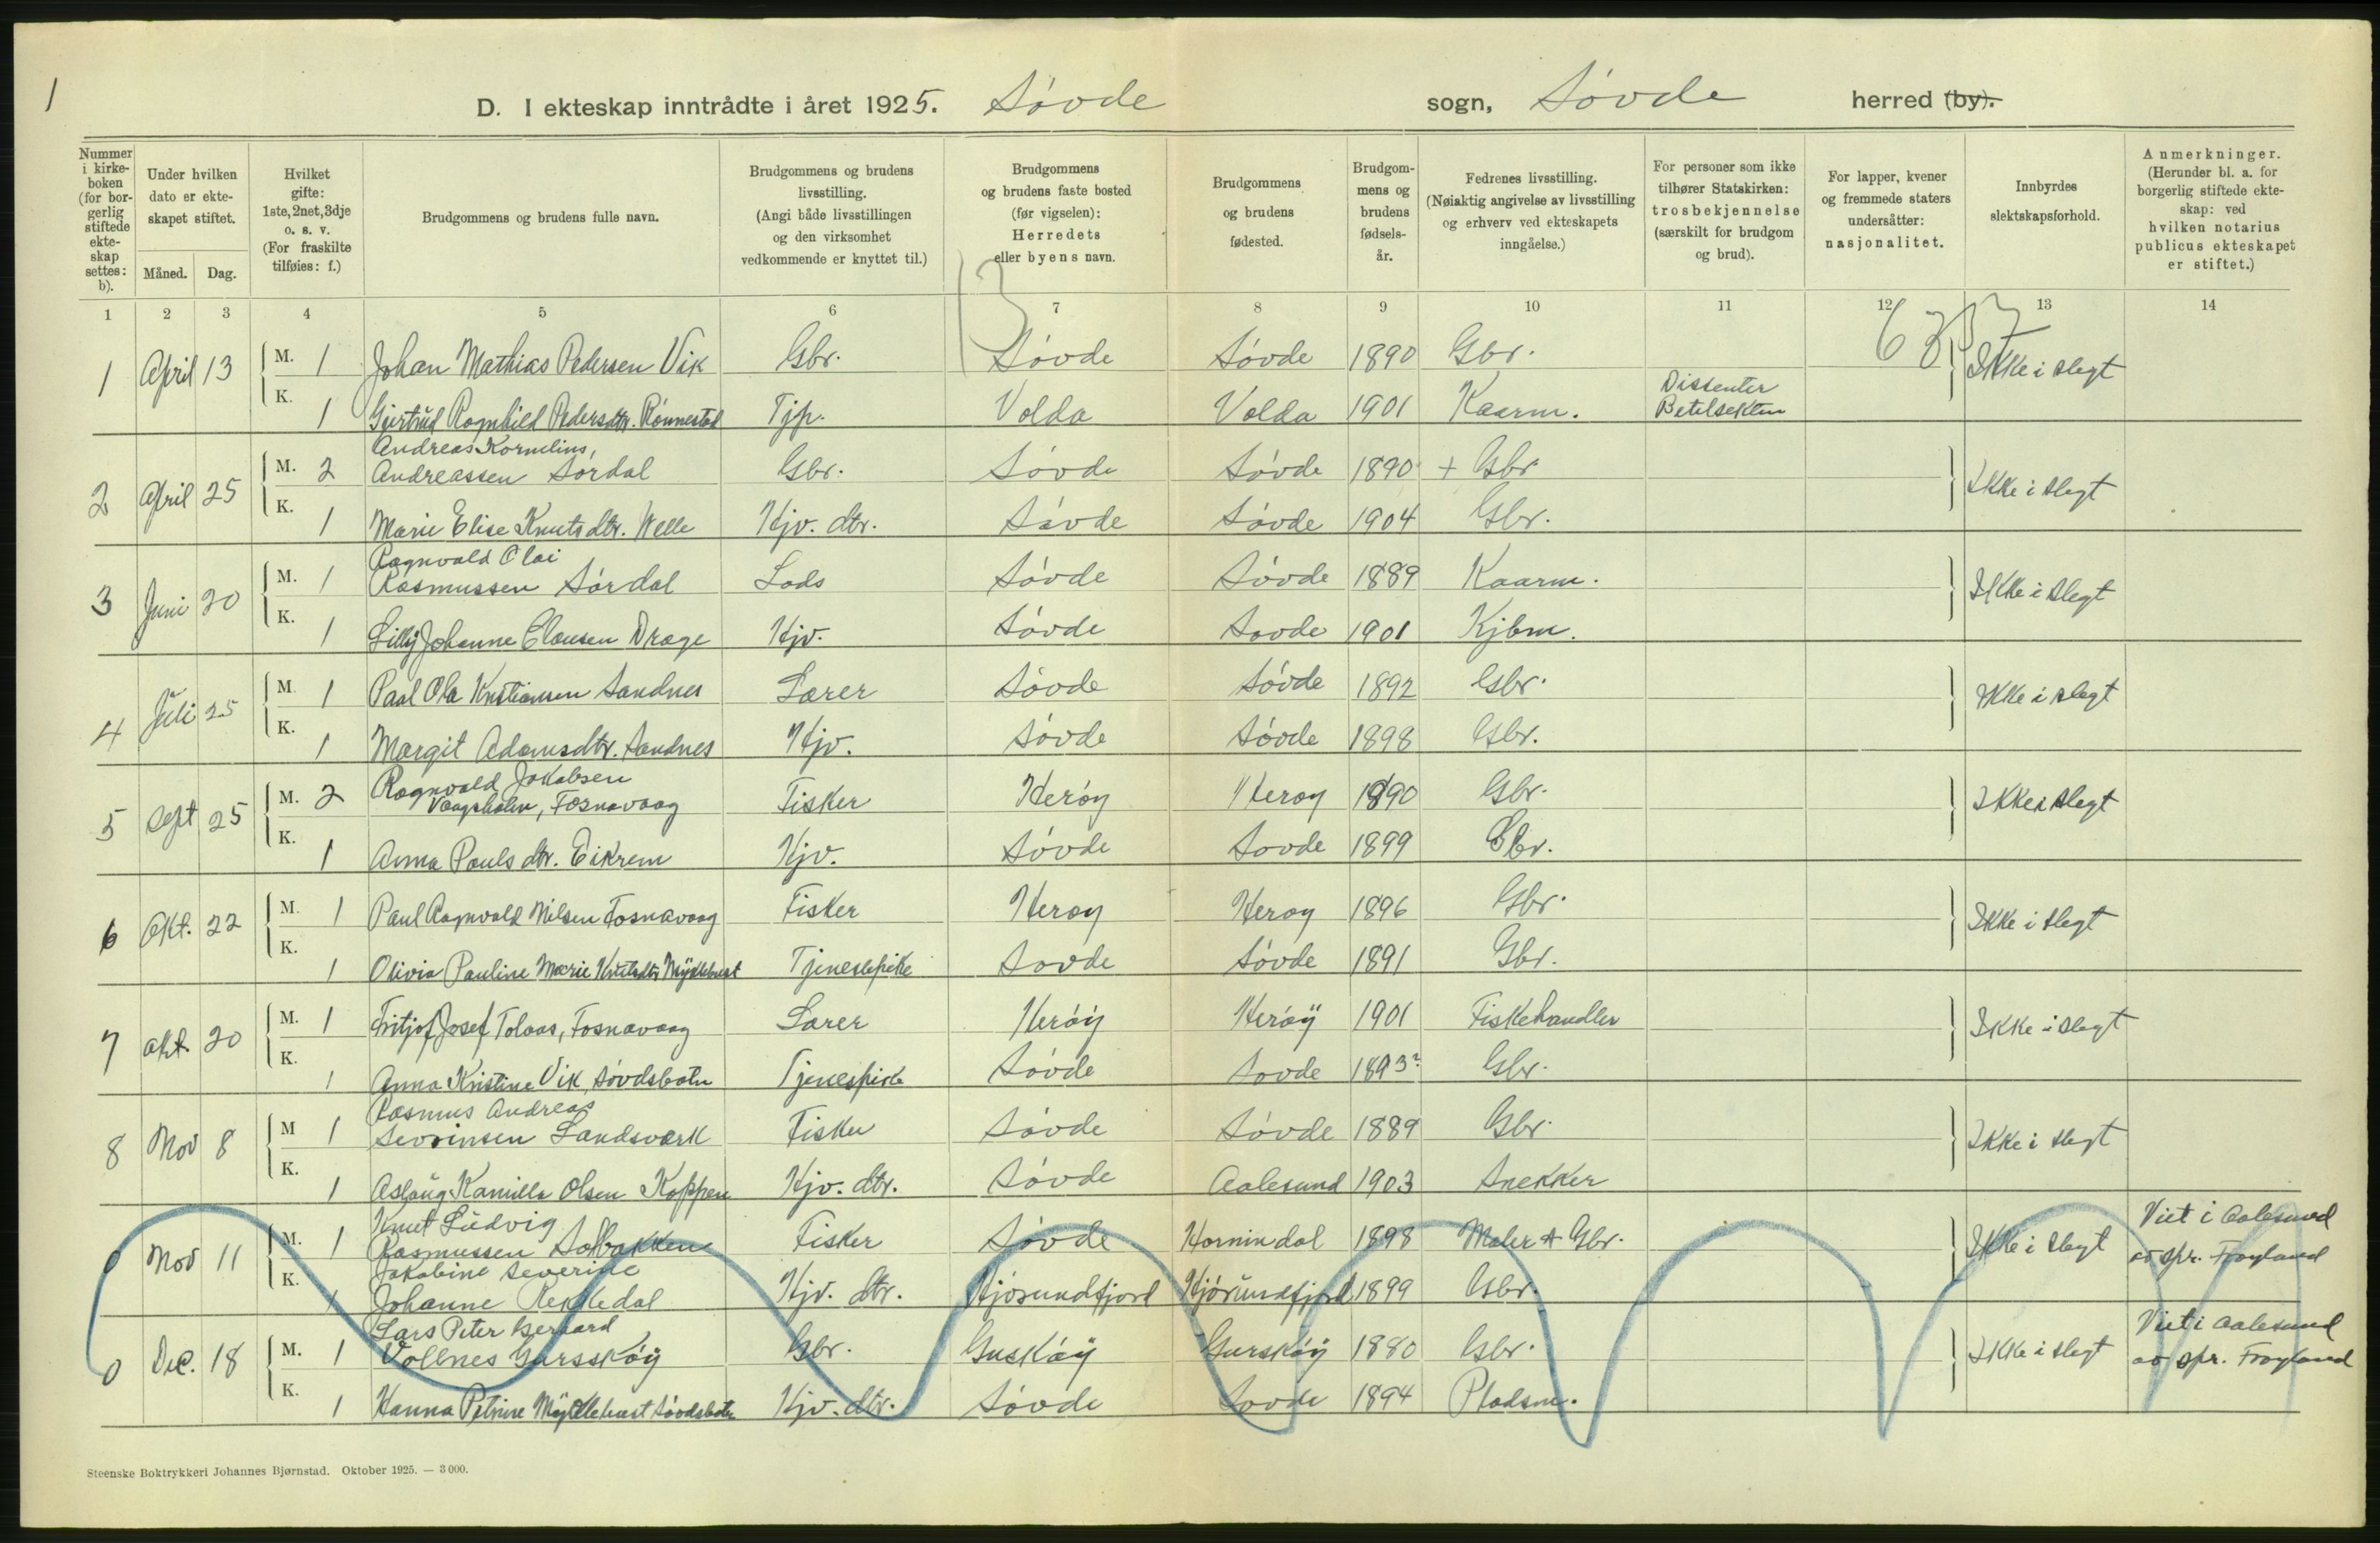 1
D. I ekteskap inntrådte i året 1925. Søvde sogn, Søvde herred (by).
Nummer i kirke-boken (for bor-gerlig stiftede ekte-skap settes: b).
Under hvilken dato er ekte-skapet stiftet.
Måned. Dag.
Hvilket gifte: 1ste, 2net, 3dje o. s. v. (For fraskilte tilføies: f.)
Brudgommens og brudens fulle navn.
Brudgommens og brudens livsstilling. (Angi både livsstillingen og den virksomhet vedkommende er knyttet til.)
Brudgommens og brudens faste bosted (før vigselen): Herredets eller byens navn.
Brudgommens og brudens fødested.
Brudgom-mens og brudens fødsels-år.
Fedrenes livsstilling. (Nøiaktig angivelse av livsstilling og erhverv ved ekteskapets inngåelse.)
For personer som ikke tilhører Statskirken: trosbekjennelse (særskilt for brudgom og brud).
For lapper, kvener og fremmede staters undersåtter: nasjonalitet.
Innbyrdes slektskapsforhold.
Anmerkninger. (Herunder bl. a. for borgerlig stiftede ekte-skap: ved hvilken notarius publicus ekteskapet er stiftet.)
1 2 3 4 5 6 7 8 9 10 11 12 13 14
13
1 April 13 M. 1 Johan Mathias Pedersen Vik Gbr. Søvde Søvde 1890 Gbr. Ikke i slegt
K. 1 Gjertrud Ragnhild Pedersdtr. Rønnestad Tjp. Volda Volda 1901 Kaarm. Dissenter Betelsekten
Andreas Kornelius,
2 April 25 M. 2 Andreassen Sørdal Gbr. Søvde Søvde 1890 + Gbr Ikke i slegt
K. 1 Marie Elise Knutsdtr. Welle Hjv. dtr. Søvde Søvde 1904 Gbr.
Ragnvald Olai
3 Juni 20 M. 1 Rasmussen Sørdal Lods Søvde Søvde 1889 Kaarm. Ikke i slegt
K. 1 Lilly Johanne Clausen Drage Hjv. Søvde Søvde 1901 Kjbm.
4 Juli 25 M. 1 Paal Ola Kristiansen Sandnes Lærer Søvde Søvde 1892 Gbr. Ikke i slegt
K. 1 Margit Adamsdtr. Sandnes Hjv. Søvde Søvde 1898 Gbr.
Ragnvald Jakobsen
5 Sept 25 M. 2 Vaagsholm, Fosnavaag Fisker Herøy Herøy 1890 Gbr. Ikke i slegt
K. 1 Anna Paulsdtr. Eikrem Hjv. Søvde Søvde 1899 Gbr.
6 Okt. 22 M. 1 Paul Ragnvald Nilsen Fosnavaag Fisker Herøy Herøy 1896 Gbr. Ikke i slegt
K. 1 Olivia Pauline Marie Knutsdtr Myklebust Tjenestepike Søvde Søvde 1891 Gbr.
7 okt. 20 M. 1 Fritjof Josef Tolaas, Fosnavaag Lærer Herøy Herøy 1901 Fiskehandler Ikke i slegt
K. 1 Anna Kristine Vik, Søvdsbotn Tjenespike Søvde Søvde 1893? Gbr.
Rasmus Andreas
8 Nov 8 M 1 Severinsen Landsverk Fisker Søvde Søvde 1889 Gbr. Ikke i slegt
K. 1 Aslaug Kamilla Olsen Koppen Hjv. dtr. Søvde Aalesund 1903 Snekker
Knut Ludvig
0 Nov 11 M. 1 Rasmussen Solbakken Fisker Søvde Hornindal 1898 Maler + Gbr. Ikke i slegt Viet i Aalesund av spr. Frøyland
Jakobine Severine
K. 1 Johanne Rekkedal Hjv. dtr. Hjørundfjord Hjørundfjord 1899 Gbr.
Lars Peter Gerhard
0 Dec. 18 M. 1 Vollnes Gursskøy Gbr. Guskøy Gurskøy 1880 Gbr. Ikke i slegt Viet i Aalesund av spr. Frøyland
K. 1 Hanna Petrine Myklebust Søvdsbotn Hjv. dtr. Søvde Søvde 1894 Pladsm.
Steenske Boktrykkeri Johannes Bjørnstad. Oktober 1925. — 3 000.